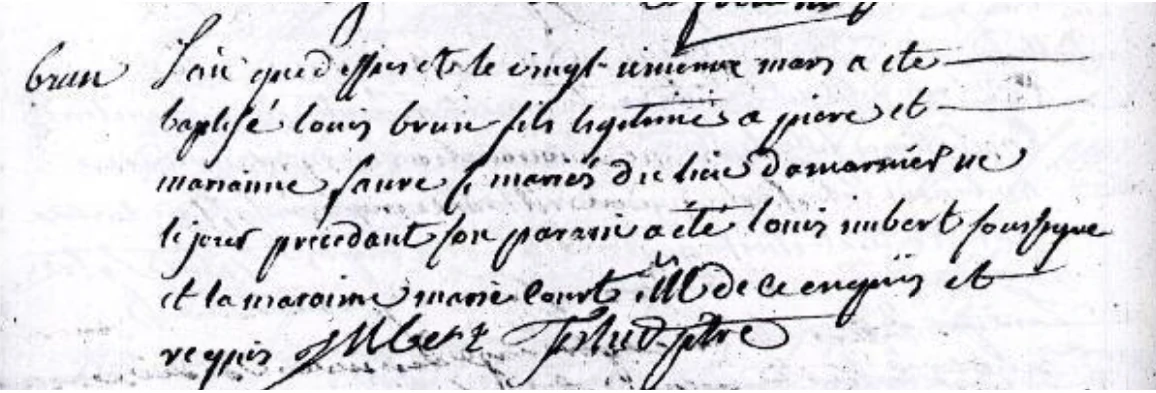 brun L'an que dessus et le vingt unieme mars a ete
baptisé louis brun fils legitime a piere et
marianne faure s. mariés du lieu damarniés ne
le jour précédant son parain a été louis imbert soussigne
et la maraine marie Court ill. de ce enquis et
requis Imbert ptre